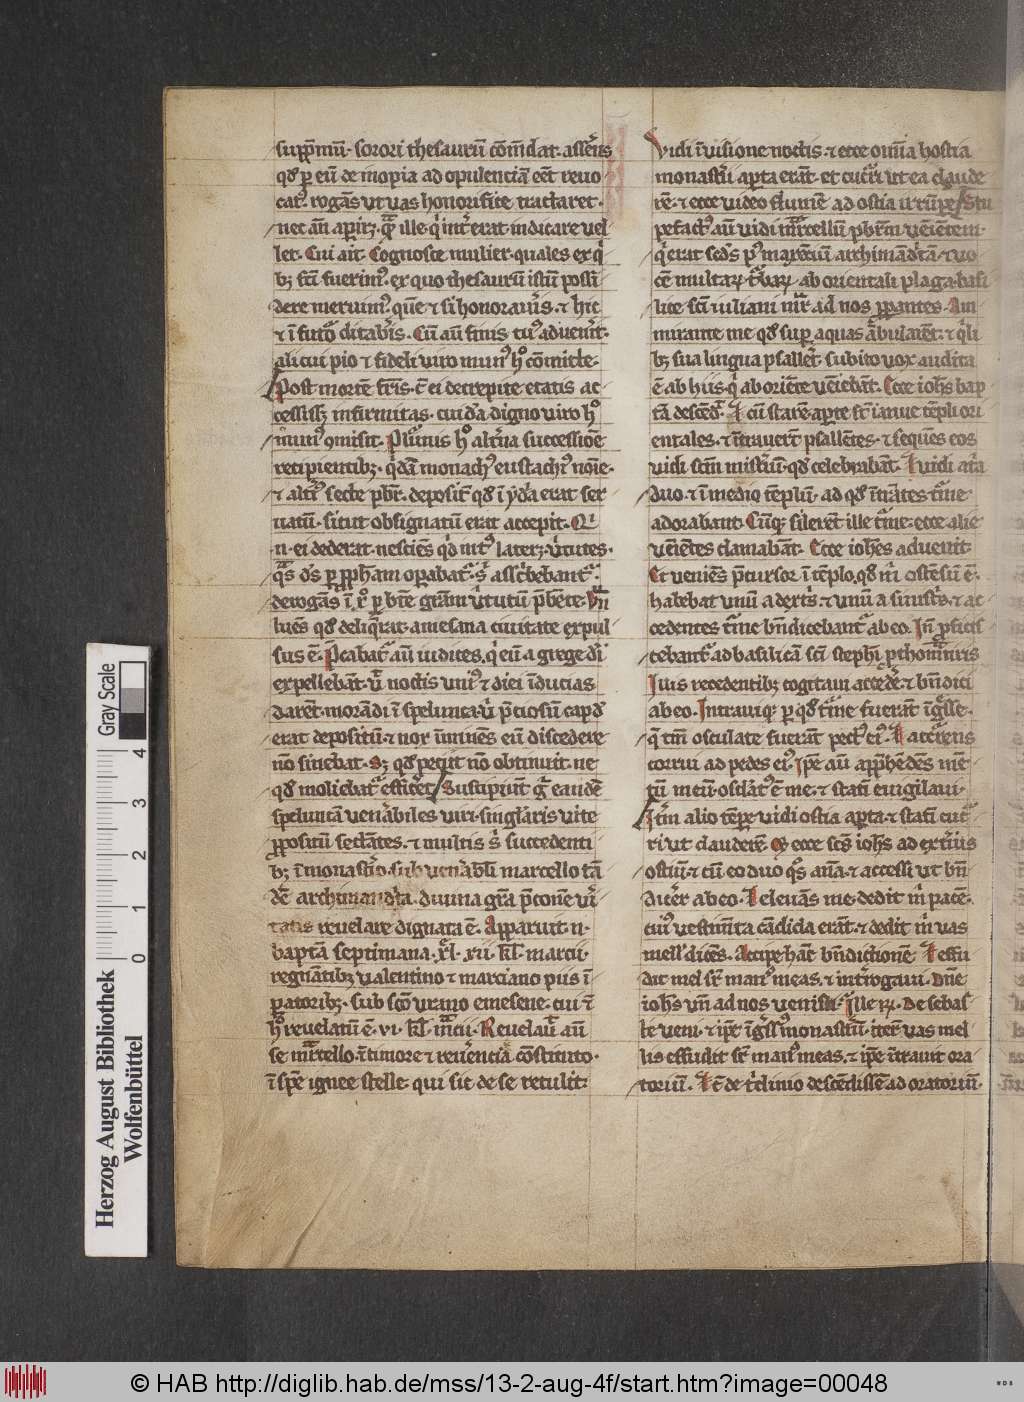 suppremū· sorori thesaurū cōmēdat· asser̄s
qd̄ p eū de inopia ad opulenciā eēt reuo
cat᷒· rogās ut uas honorifice tractaret·
nec aū apiret· ille int̄ erat indicare uel
let· Cui ait· Cognosce mulier quales ex
bꝫ sc̄m fuerim᷒· ex quo thesaurū istū possi
dere meruim᷒· et si honorau̓is· ⁊ hic
⁊ ī futo ditabis· Cū aū finis tu᷒ aduenit·
alicui pio ⁊ fideli uiro mun᷒ h̓ cōmitte·
Post mortē fr̄is· ei decrepite etatis ac
cessisset infirmitas· cuidā digno uiro h̓
mun᷒ cōmisit· Plurimis h̓ alterna successione
recipientibꝫ· qidā monach᷒ eustachi᷒ noīe·
⁊ alter secte pbr̄· deposit qd̄ ī ydria erat ser
uatū· sicut obsignatū erat accepit· Qui
n̄ ei dederat· nesciēs qd̄ int᷒ lateret· uirtutes·
qs ds̄ p pph̄am opabat᷒ s̄ asc̓bebant᷒·
derogās ī xo p btē grām uirtutū pbēte·
lues qd̄ deliqrat· amesana ciuitate expul
sus ē· Pcabat᷒ aū iudices, q̇ eū a grege dn̄i
expellebāt· ut noctis uni᷒ ⁊ diei īducias
darēt· morādi ī spelunca u̇ pciosū capd
erat depositū· ⁊ nox īminēs eū discedere
nō sinebat· Sꝫ qd̄ peciit nō obtinuit· ne
qd̄ moliebat᷒ efficeret· Susceperunt g̊ eandē
speluncā uenerabiles uiri· singularis uite
ppositū sectātes· ⁊ multis s̄ succedenti
bꝫ ī monasterio· sub uenerabili marcello tādē
archimandrita· diuina gr̄a pconē ueri
tatis reuelare dignata ē· Apparuit n̄
baptā septimana· xl· xii· kl̄ marcii·
regnātibꝫ ualentino ⁊ marciano piis ī
peratoribꝫ· sub sc̄o uranio emesene· cui ⁊
h̓ reuelatū ē· vi· kl̄ marcii· Reuelauit aū
se marcello· ī timore ⁊ reuerencia cōstituto·
ī spe ignee stelle· qui sic de se retulit·
Vidi ī uisione noctis· ⁊ ecce omnia hostia
monastīi apta erāt· et cucri ut ea claude
rē· ⁊ ecce uideo flumē ad ostia irrūpe· Stu
pefact᷒ aū uidi marcellū pbrm ueniētem·
q̇ erat seds p᷒ marciū archimādtā· ⁊ uo
cē multarꝝ turbarꝝ ab orientali plaga basi
lice sc̄i iuliani mr̄ ad nos ppantes· Am
mirante me qd̄ sup aquas ambularēt· ⁊ qli
bꝫ sua lingua psallet· subito uox audita
ē ab hiis q ab oriēte ueniebāt· Ecce ioh̄s bap
tā descēdit· ⁊ cū starē apte st̄ ianue tēpli ori
entales· ⁊ ītrauert̄ psallētes· ⁊ sequens eos
uidi sc̄m mist̄iū· qd̄ celebrabāt· ⁊ uidi atria
duo· ⁊ ī medio tēplū· ad qd̄ ītrātes
adorabant· Cūqꝫ silerēt ille ecce alie
ueniētes clamabāt· Ecce ioh̄es aduenit·
Et ueniēs pcursor ī tēplo, qd̄ m̄ ostensū ē·
habebat unū a dextris· ⁊ unū a sinistris· ⁊ ac
cedentes bn̄dicebant᷒ ab eo· pficis
cebant᷒ ad basilicā sc̄i stephi pthomartiris
recedentibꝫ cogitaui accedere· ⁊ bn̄dici
ab eo· Intrauiqꝫ p qd̄ fuerāt īgresse·
osculate fuerāt pect᷒ ei᷒· ⁊ accurrens
corrui ad pedes ei᷒· ipse aū apphēdēs mē
tū meū· osculat᷒ ē me· ⁊ statī euigilaui·
alio tēpe uidi ostia apta· ⁊ statī cuc̄
ri ut clauderē· ecce sc̄s ioh̄s ad exterius
ostiū· ⁊ cū eo duo · ⁊ accessi ut bn̄
dicerer ab eo· ⁊ eleuās me dedit m̄ pacē·
cui᷒ uestimēta cādida erāt· ⁊ dedit m̄ uas
mell᷒ dicēs· Accipe hāc bn̄dictionē· ⁊ effu
dit mel sr̄ man᷒ meas· ⁊ int̄rogaui· Dn̄e
ioh̄s un̄ ad nos uenisti· Ille rꝝ· De sebas
te ueni· ⁊ ipē īgss᷒ monastiū· iterū uas mel
lis effudit sr̄ man᷒ meas· ⁊ ipē ītrauit ora
toriū· Īde t̄clinio descēdissē ad oratoriū·
Herzog August Bibliothek
Wolfenbüttel
Gray Scale
0 1 2 3 4
© HAB http://diglib.hab.de/mss/13-2-aug-4f/start.htm?image=00048
WDB